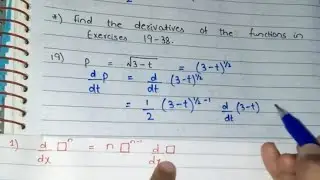 *) find the derivatives of the functions in
Exercises 19-38.
19) P = √3-t = (3-t)^½
d/dt P = d/dt (3-t)^½
= 1/2 (3-t)^½-1 d/dt (3-t)
1) d/dx □^n = n □^n-1 d/dx □